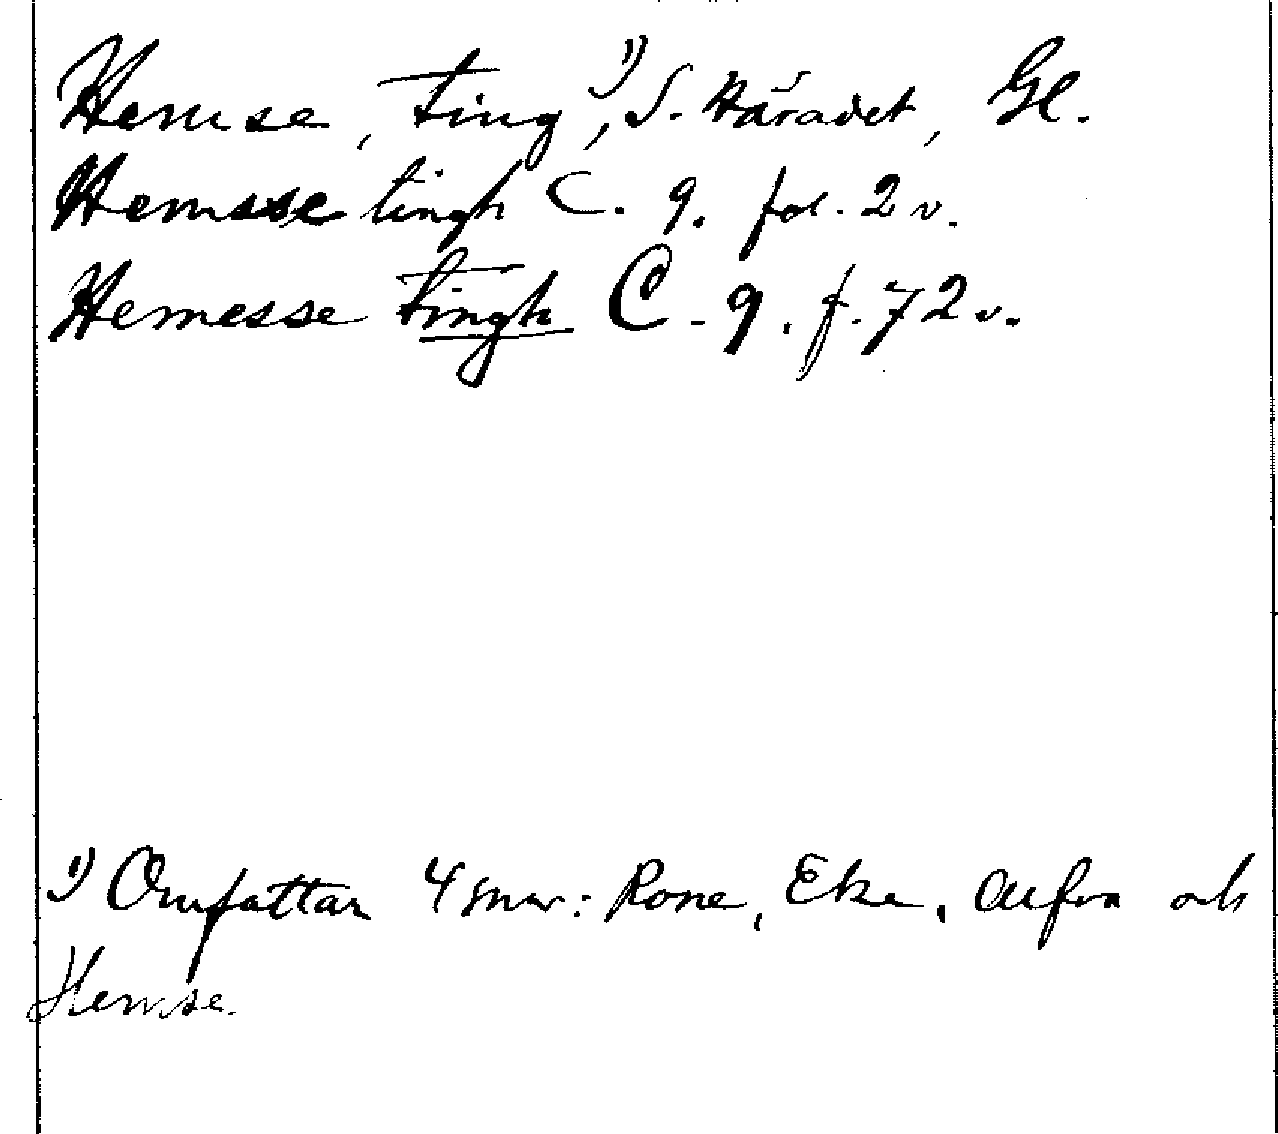 Hemse, ting ¹⁾, S. Häradet, Gl.
Hemsse tingh C. 9. fol. 2 v.
Hemesse tingh C. 9. f. 72 v.
¹⁾ Omfattar 4 snr: Rone, Eke, Alfva och
Hemse.